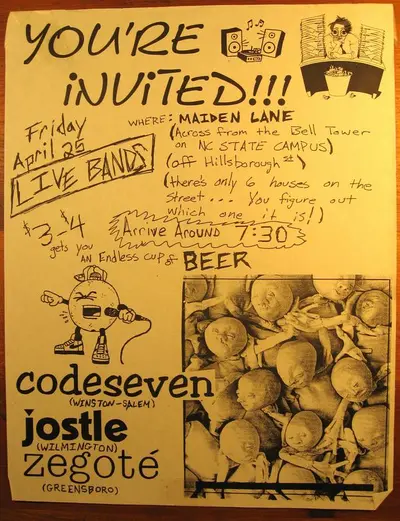 YOU'RE
INVITED!!!
Friday
April 25
LIVE BANDS
WHERE: MAIDEN LANE
(Across from the Bell Tower
on NC STATE CAMPUS)
(off Hillsborough St)
(there's only 6 houses on the
street... You figure out
which one it is!)
$3-$4
Arrive Around 7:30
gets you
AN Endless cup of BEER
codeseven
(WINSTON-SALEM)
jostle
(WILMINGTON)
zegoté
(GREENSBORO)